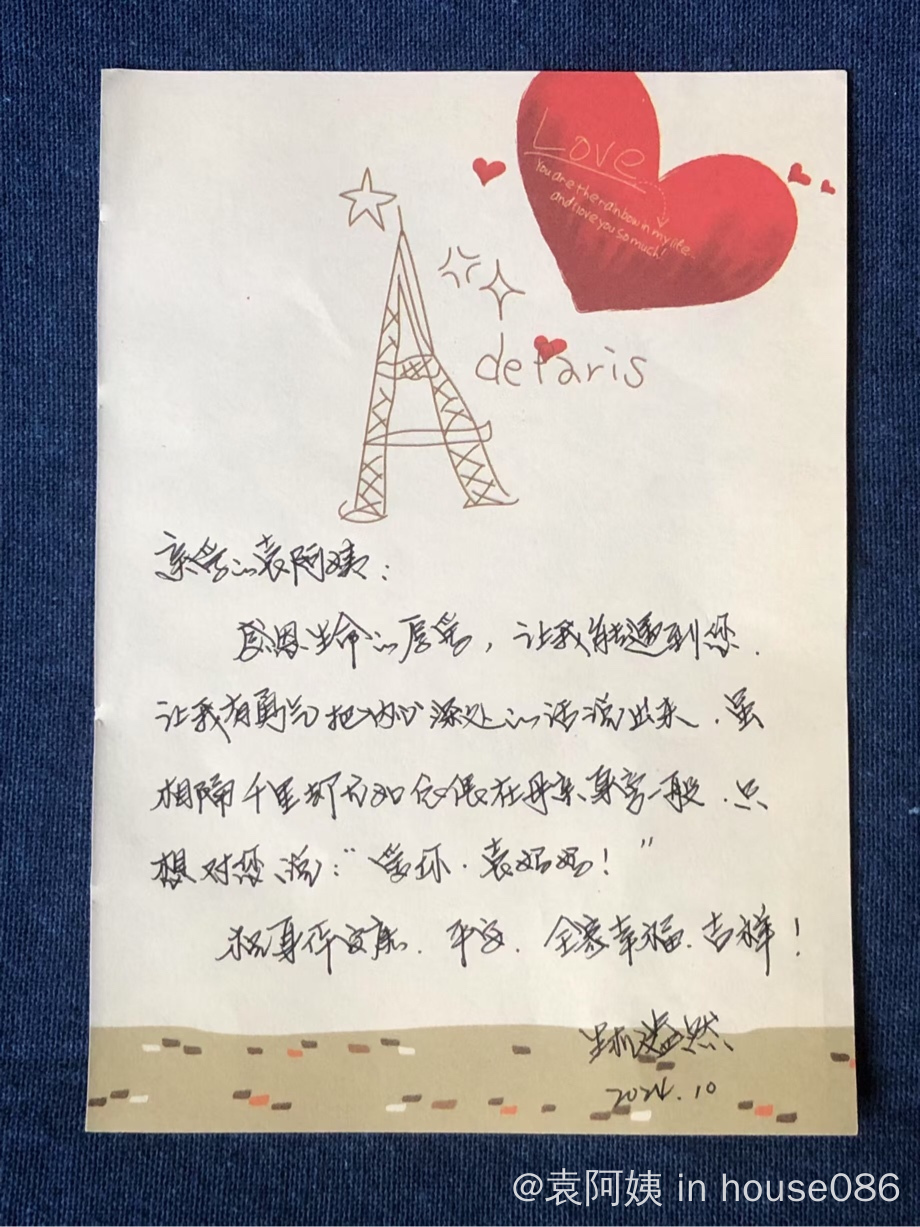 Love
You are the rainbow in my life
and I love you so much!
de Paris
亲爱的袁阿姨:
感恩生命的厚爱,让我能遇到您.
让我有勇气把内心深处的话说出来.虽
相隔千里却有如依偎在母亲身旁一般.只
想对您说:“爱你.袁妈妈!”
祝身体安康.平安.全家幸福.吉祥!
生机盎然
2024.10
@袁阿姨 in house086